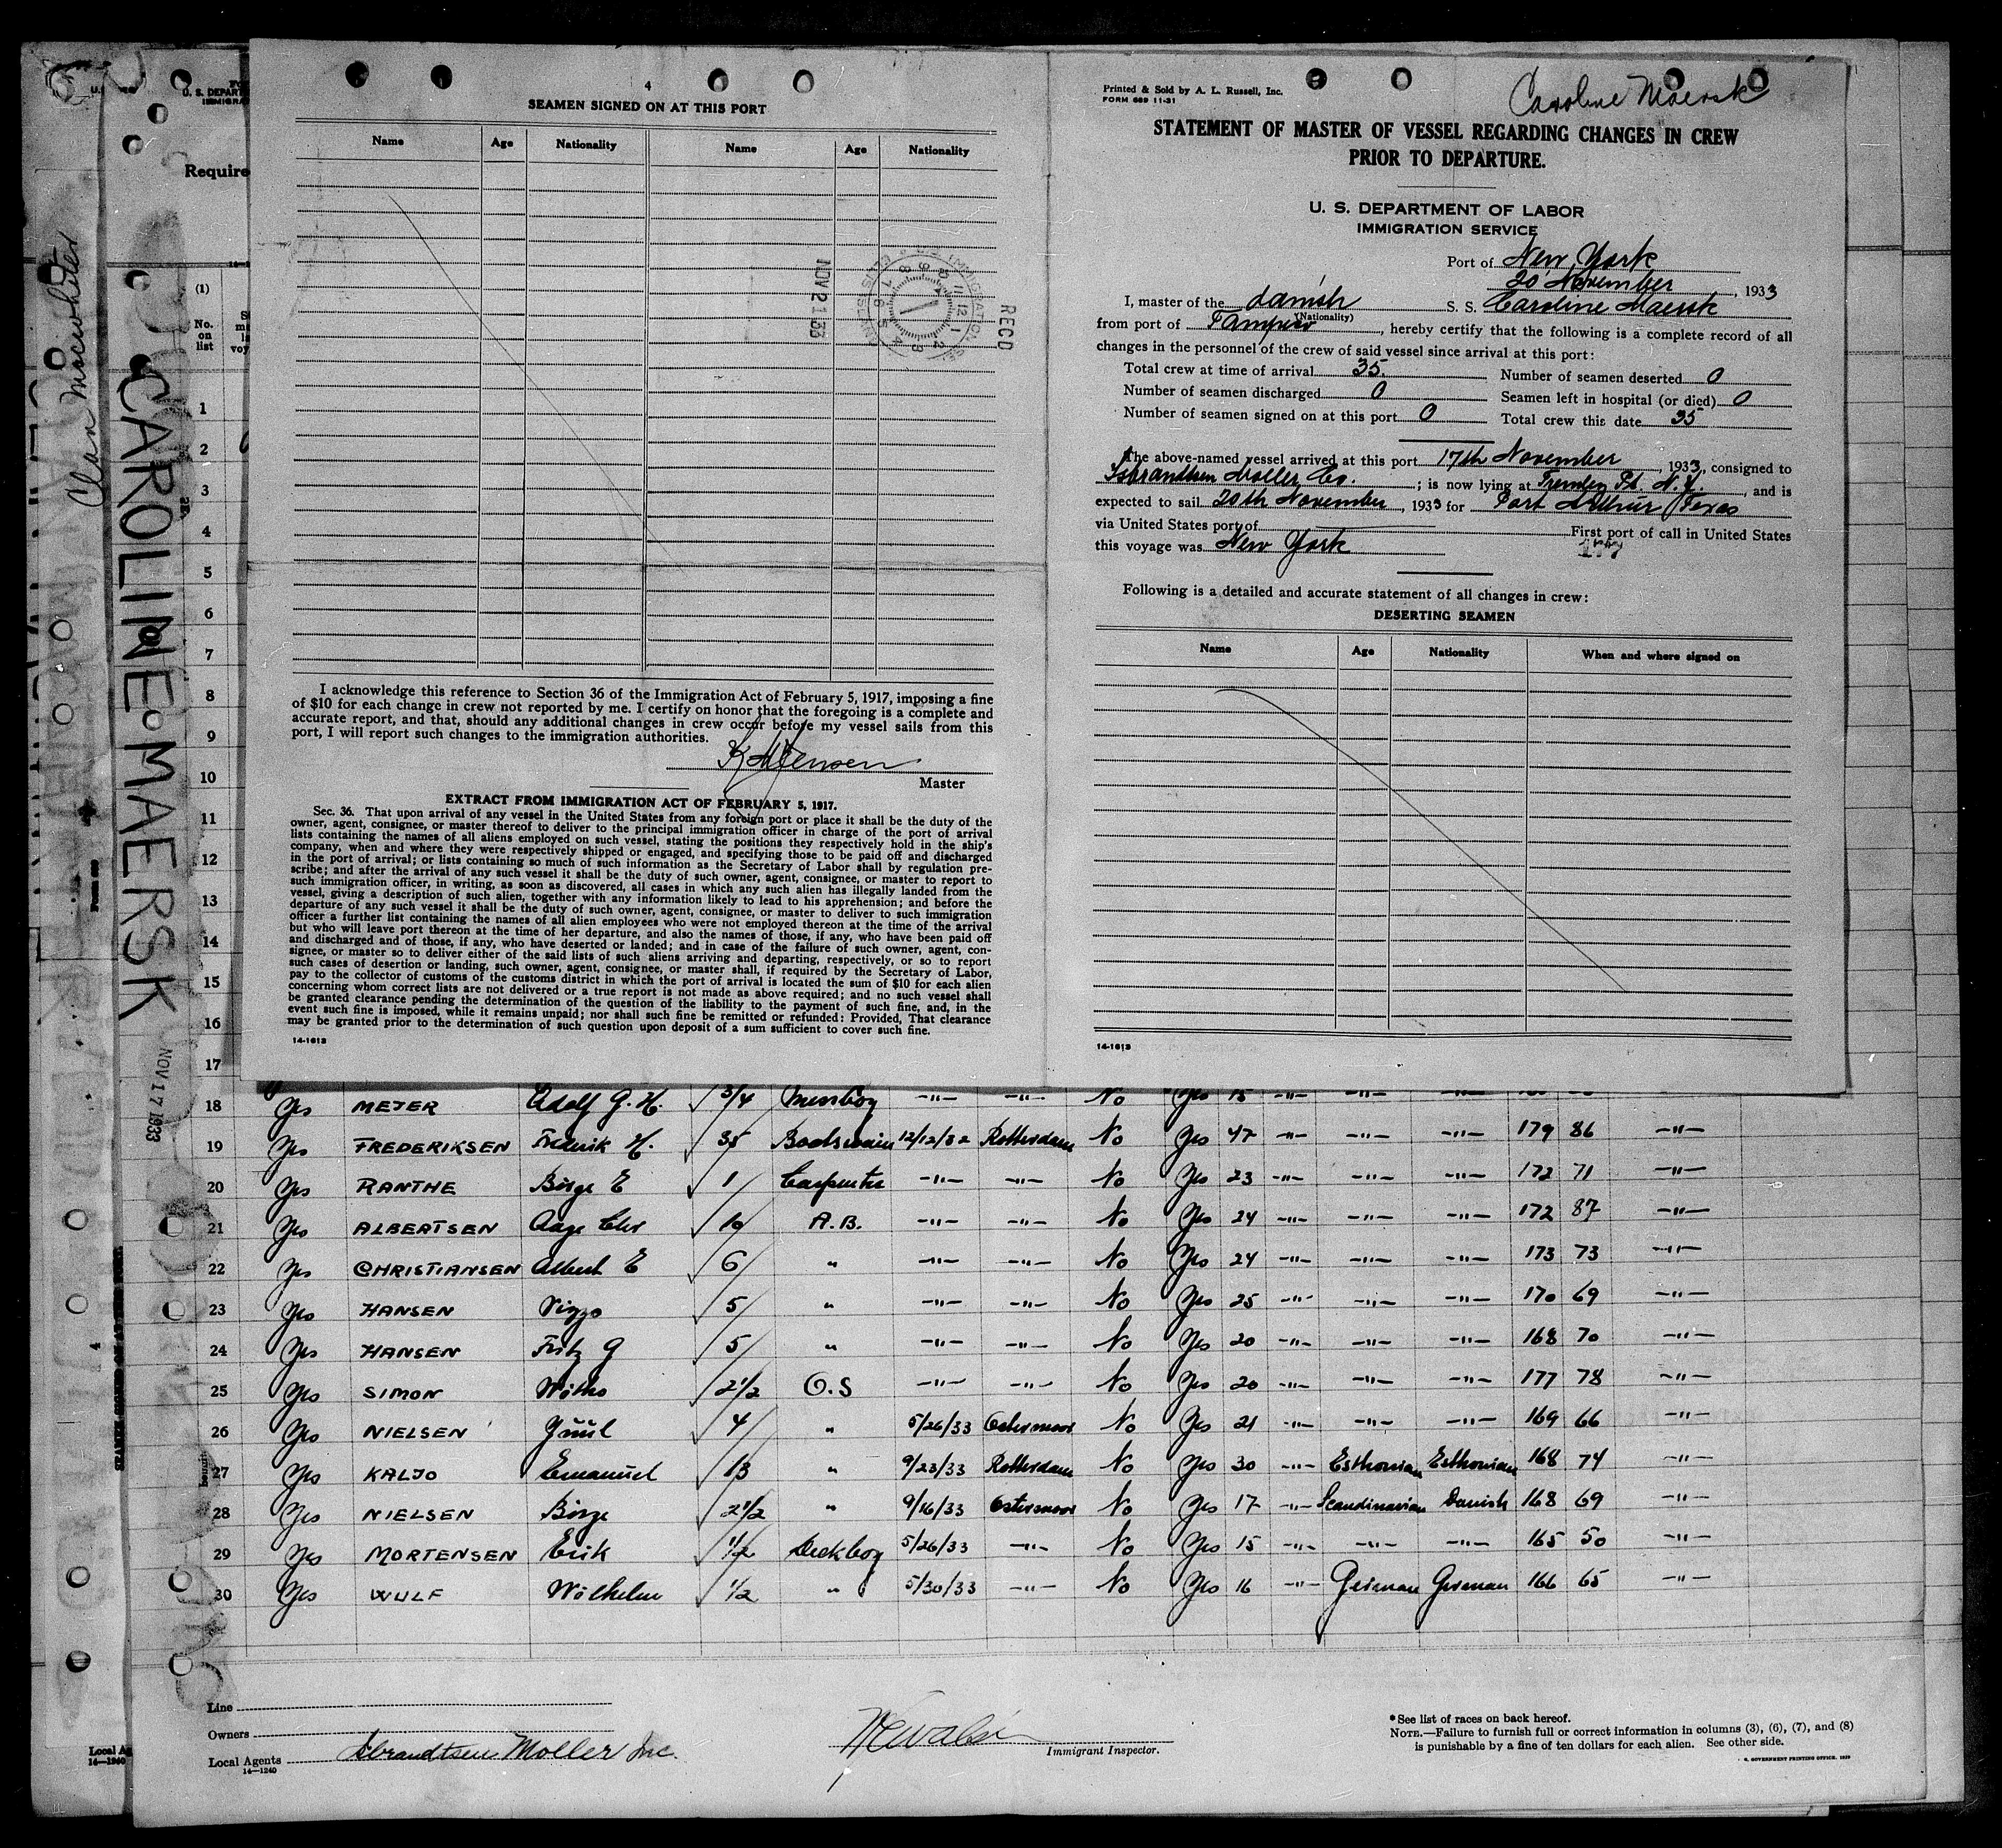 4
SEAMEN SIGNED ON AT THIS PORT
Name Age Nationality Name Age Nationality
NOV 21 33
RECD
I acknowledge this reference to Section 36 of the Immigration Act of February 5, 1917, imposing a fine
of $10 for each change in crew not reported by me. I certify on honor that the foregoing is a complete and
accurate report, and that, should any additional changes in crew occur before my vessel sails from this
port, I will report such changes to the immigration authorities.
Master
EXTRACT FROM IMMIGRATION ACT OF FEBRUARY 5, 1917.
Sec. 36. That upon arrival of any vessel in the United States from any foreign port or place it shall be the duty of the
owner, agent, consignee, or master thereof to deliver to the principal immigration officer in charge of the port of arrival
lists containing the names of all aliens employed on such vessel, stating the positions they respectively hold in the ship's
company, when and where they were respectively shipped or engaged, and specifying those to be paid off and discharged
in the port of arrival; or lists containing so much of such information as the Secretary of Labor shall by regulation pre-
scribe; and after the arrival of any such vessel it shall be the duty of such owner, agent, consignee, or master to report to
such immigration officer, in writing, as soon as discovered, all cases in which any such alien has illegally landed from the
vessel, giving a description of such alien, together with any information likely to lead to his apprehension; and before the
departure of any such vessel it shall be the duty of such owner, agent, consignee, or master to deliver to such immigration
officer a further list containing the names of all alien employees who were not employed thereon at the time of the arrival
but who will leave port thereon at the time of her departure, and also the names of those, if any, who have been paid off
and discharged and of those, if any, who have deserted or landed; and in case of the failure of such owner, agent, con-
signee, or master so to deliver either of the said lists of such aliens arriving and departing, respectively, or so to report
such cases of desertion or landing, such owner, agent, consignee, or master shall, if required by the Secretary of Labor,
pay to the collector of customs of the customs district in which the port of arrival is located the sum of $10 for each alien
concerning whom correct lists are not delivered or a true report is not made as above required; and no such vessel shall
be granted clearance pending the determination of the question of the liability to the payment of such fine, and, in the
event such fine is imposed, while it remains unpaid; nor shall such fine be remitted or refunded: Provided, That clearance
may be granted prior to the determination of such question upon deposit of a sum sufficient to cover such fine.
14-1613
Printed & Sold by A. L. Russell, Inc.
FORM 689 11-31
Caroline Maersk
STATEMENT OF MASTER OF VESSEL REGARDING CHANGES IN CREW
PRIOR TO DEPARTURE.
U. S. DEPARTMENT OF LABOR
IMMIGRATION SERVICE
Port of New York
20 November, 1933
I, master of the danish S. S. Caroline Maersk
(Nationality)
from port of Tampico, hereby certify that the following is a complete record of all
changes in the personnel of the crew of said vessel since arrival at this port:
Total crew at time of arrival 35. Number of seamen deserted 0
Number of seamen discharged 0 Seamen left in hospital (or died) 0
Number of seamen signed on at this port 0 Total crew this date 35
The above-named vessel arrived at this port 17th November, 1933, consigned to
Isbrandtsen Moller Co.; is now lying at Tremley Pt. N.J., and is
expected to sail 20th November, 1933 for Port Arthur Texas
via United States port of First port of call in United States
this voyage was New York
Following is a detailed and accurate statement of all changes in crew:
DESERTING SEAMEN
Name Age Nationality When and where signed on
14-1613
Clan Macwhirter
CAROLINE MAERSK
NOV 17 1933
Require
(1)
No.
on
list
1
2
3
4
5
6
7
8
9
10
11
12
13
14
15
16
17
18 Yes MEJER Adolf G. H. 3/4 Messboy -"- -"- No Yes 15 -"- -"- -"-
19 Yes FREDERIKSEN Frederik H. 35 Boatswain 12/12/32 Rotterdam No Yes 47 -"- -"- -"- 179 86 -"-
20 Yes RANTHE Börge E 1 Carpenter -"- -"- No Yes 23 -"- -"- -"- 172 71 -"-
21 Yes ALBERTSEN Aage Chr 10 A.B. -"- -"- No Yes 24 -"- -"- -"- 172 87 -"-
22 Yes CHRISTIANSEN Albert E 6 " -"- -"- No Yes 24 -"- -"- -"- 173 73 -"-
23 Yes HANSEN Viggo 5 " -"- -"- No Yes 25 -"- -"- -"- 170 69 -"-
24 Yes HANSEN Fritz G 5 " -"- -"- No Yes 20 -"- -"- -"- 168 70 -"-
25 Yes SIMON 2 1/2 O.S -"- -"- No Yes 20 -"- -"- -"- 177 78 -"-
26 Yes NIELSEN Juul 4 " 5/26/33 Ostermoor No Yes 21 -"- -"- -"- 169 66 -"-
27 Yes KALJO Emanuel 13 " 9/23/33 Rotterdam No Yes 30 -"- Esthonian Esthonian 168 74 -"-
28 Yes NIELSEN Börge 2 1/2 " 9/16/33 Ostermoor No Yes 17 -"- Scandinavian Danish 168 69 -"-
29 Yes MORTENSEN Erik 1/2 Deckboy 5/26/33 -"- No Yes 15 -"- -"- -"- 165 50 -"-
30 Yes WULF Wilhelm 1/2 " 5/30/33 -"- No Yes 16 -"- German German 166 65 -"-
Line
Owners
Local Agents Isbrandtsen Moller Inc.
14-1240
Immigrant Inspector.
*See list of races on back hereof.
NOTE.—Failure to furnish full or correct information in columns (3), (6), (7), and (8)
is punishable by a fine of ten dollars for each alien. See other side.